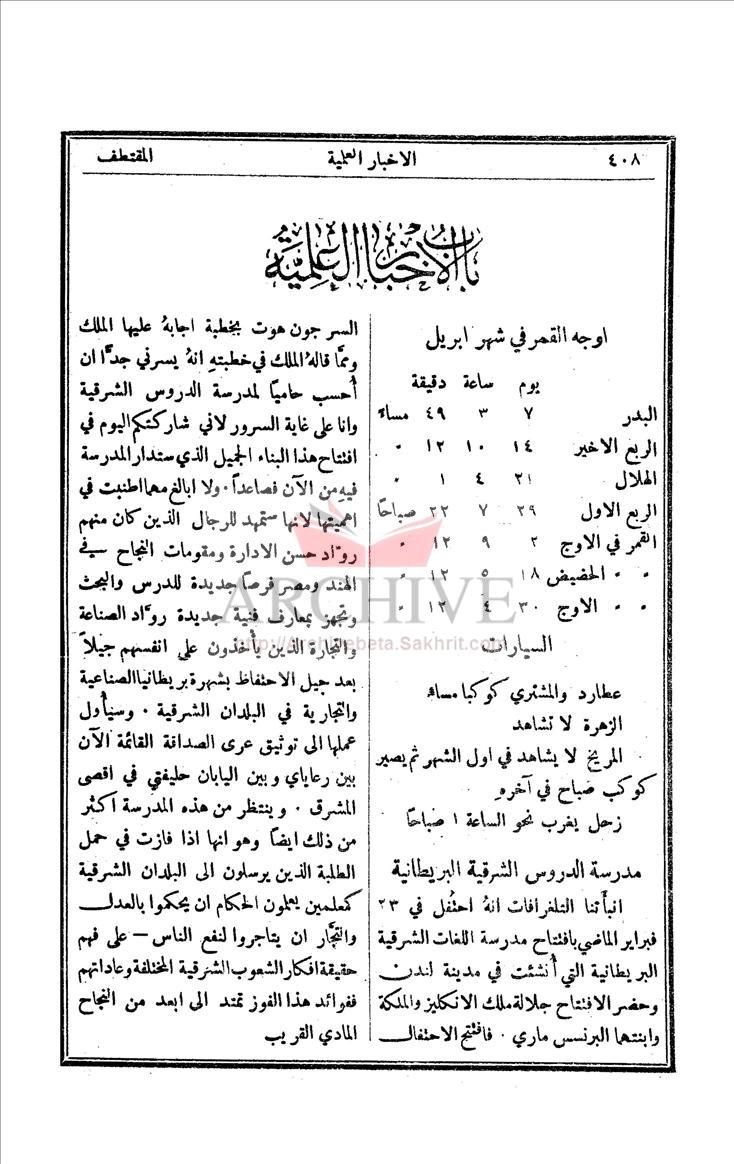 ٤٠٨ الاخبار العلمية المقتطف
باب الاخبار العلمية
اوجه القمر في شهر ابريل
يوم ساعة دقيقة
البدر ٧ ٣ ٤٩ مساء
الربع الاخير ١٤ ١٠ ١٢ "
الهلال ٢١ ٤ ١ "
الربع الاول ٢٩ ٧ ٢٢ صباحًا
القمر في الاوج ٢ ٩ ١٢ "
" " الحضيض ١٨ ٥ ١٢ "
" " الاوج ٣٠ ٤ ١٢ "
السيارات
عطارد والمشتري كوكبا مساء
الزهرة لا تشاهد
المريخ لا يشاهد في اول الشهر ثم يصير
كوكب صباح في آخرهِ
زحل يغرب نحو الساعة ١ صباحًا
مدرسة الدروس الشرقية البريطانية
انبأتنا التلغرافات انهُ احتُفل في ٢٣
فبراير الماضي بافتتاح مدرسة اللغات الشرقية
البريطانية التي أُنشئت في مدينة لندن
وحضر الافتتاح جلالة ملك الانكليز والملكة
وابنتهما البرنسس ماري . فافتتح الاحتفال
السر جون هوت بخطبة اجابهُ عليها الملك
وممَّا قالهُ الملك في خطبتهِ انهُ يسرني جدًّا ان
أُحسب حاميًا لمدرسة الدروس الشرقية
وانا على غاية السرور لاني شاركتكم اليوم في
افتتاح هذا البناء الجميل الذي ستدار المدرسة
فيهِ من الآن فصاعدًا . ولا ابالغ مهما اطنبت في
اهميتها لانها ستمهد للرجال الذين كان منهم
روّاد حسن الادارة ومقومات النجاح في
الهند ومصر فرصًا جديدة للدرس والبحث
وتجهز بمعارف فنية جديدة روّاد الصناعة
والتجارة الذين يأخذون على انفسهم جيلاً
بعد جيل الاحتفاظ بشهرة بريطانيا الصناعية
والتجارية في البلدان الشرقية . وسيأول
عملها الى توثيق عرى الصداقة القائمة الآن
بين رعاياي وبين اليابان حليفتي في اقصى
المشرق . وينتظر من هذه المدرسة اكثر
من ذلك ايضًا وهو انها اذا فازت في حمل
الطلبة الذين يرسلون الى البلدان الشرقية
كمعلمين يعلمون الحكام ان يحكموا بالعدل
والتجَّار ان يتاجروا لنفع الناس — على فهم
حقيقة افكار الشعوب الشرقية المختلفة وعاداتهم
ففوائد هذا الفوز تمتد الى ابعد من النجاح
المادي القريب
ARCHIVE
http://Archivebeta.Sakhrit.com